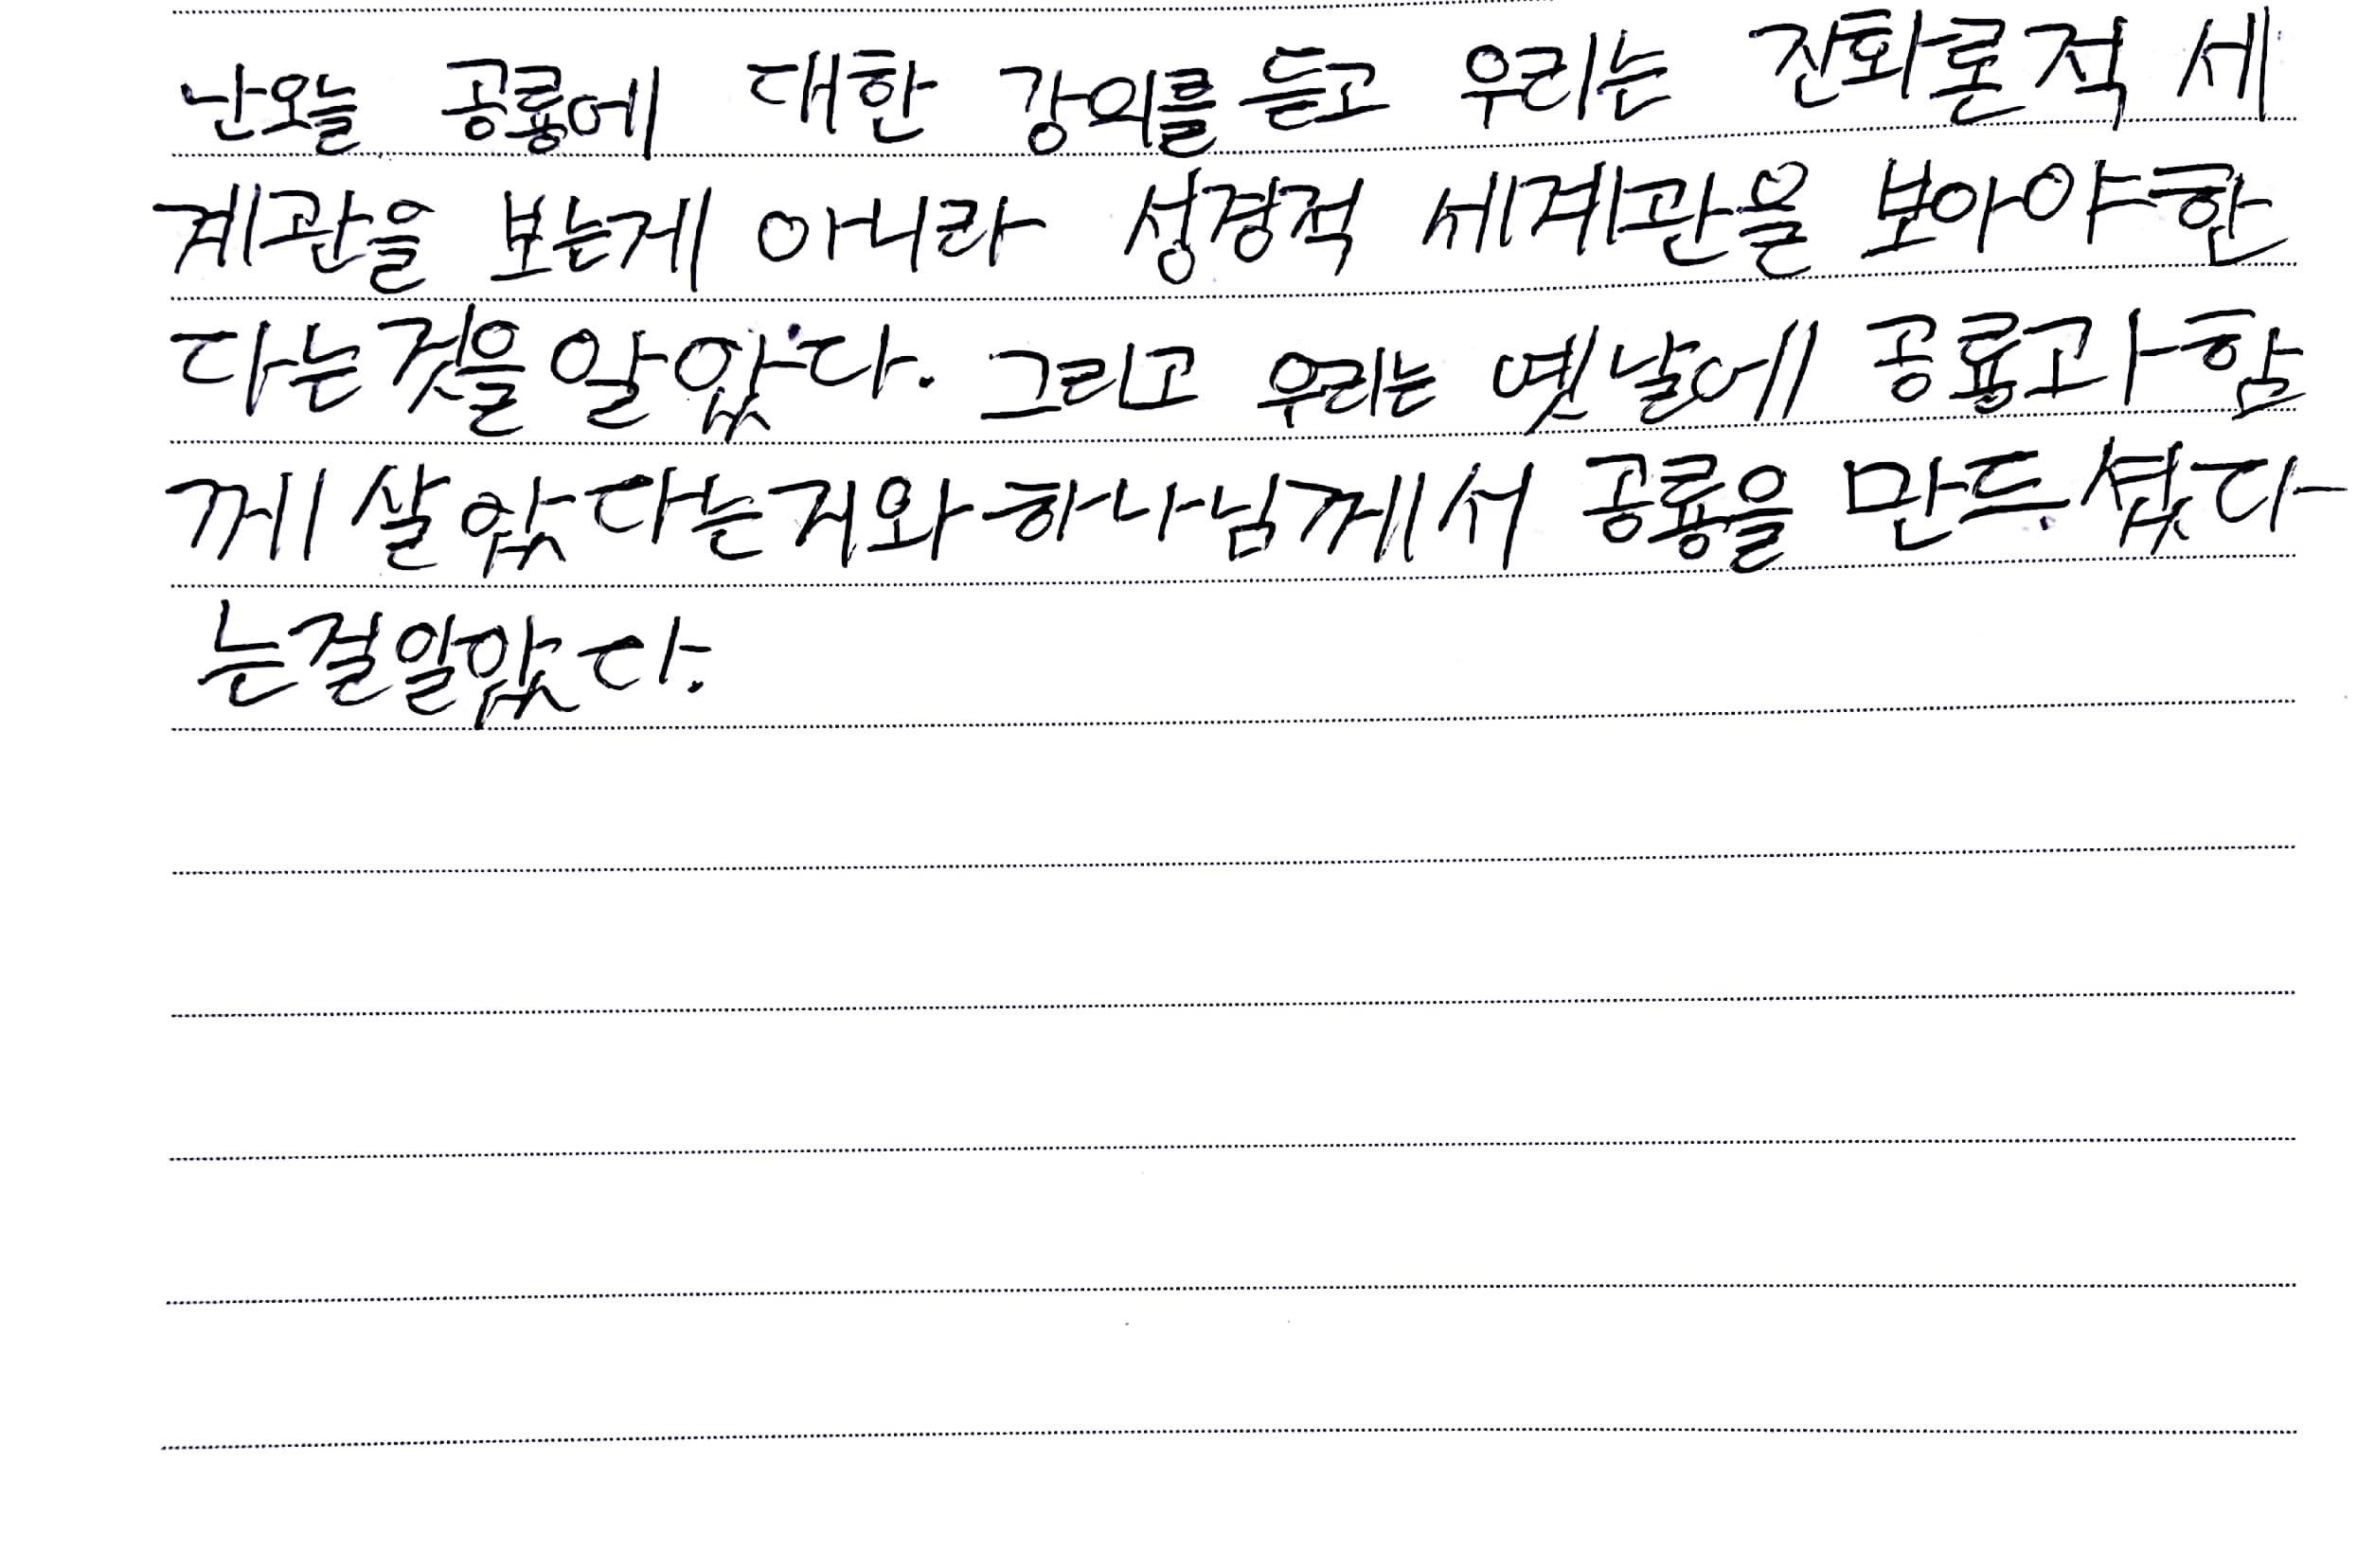 난오늘 공룡에 대한 강의를 듣고 우리는 진화론적 세
계관을 보는게 아니라 성경적 세계관을 보아야한
다는것을 알았다. 그리고 우리는 옛날에 공룡과 함
께 살았다는거와 하나님께서 공룡을 만드셨다
는걸알았다.